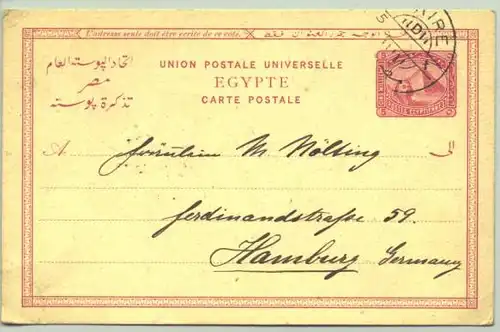 L'adresse seule doit être écrite de ce côté.
اتحاد البوستة العام
مصر
تذكرة بوستة
UNION POSTALE UNIVERSELLE
EGYPTE
CARTE POSTALE
AIRE
5
A
الى
Fräulein M. Nölting
Ferdinandstraße 59.
Hamburg Germany